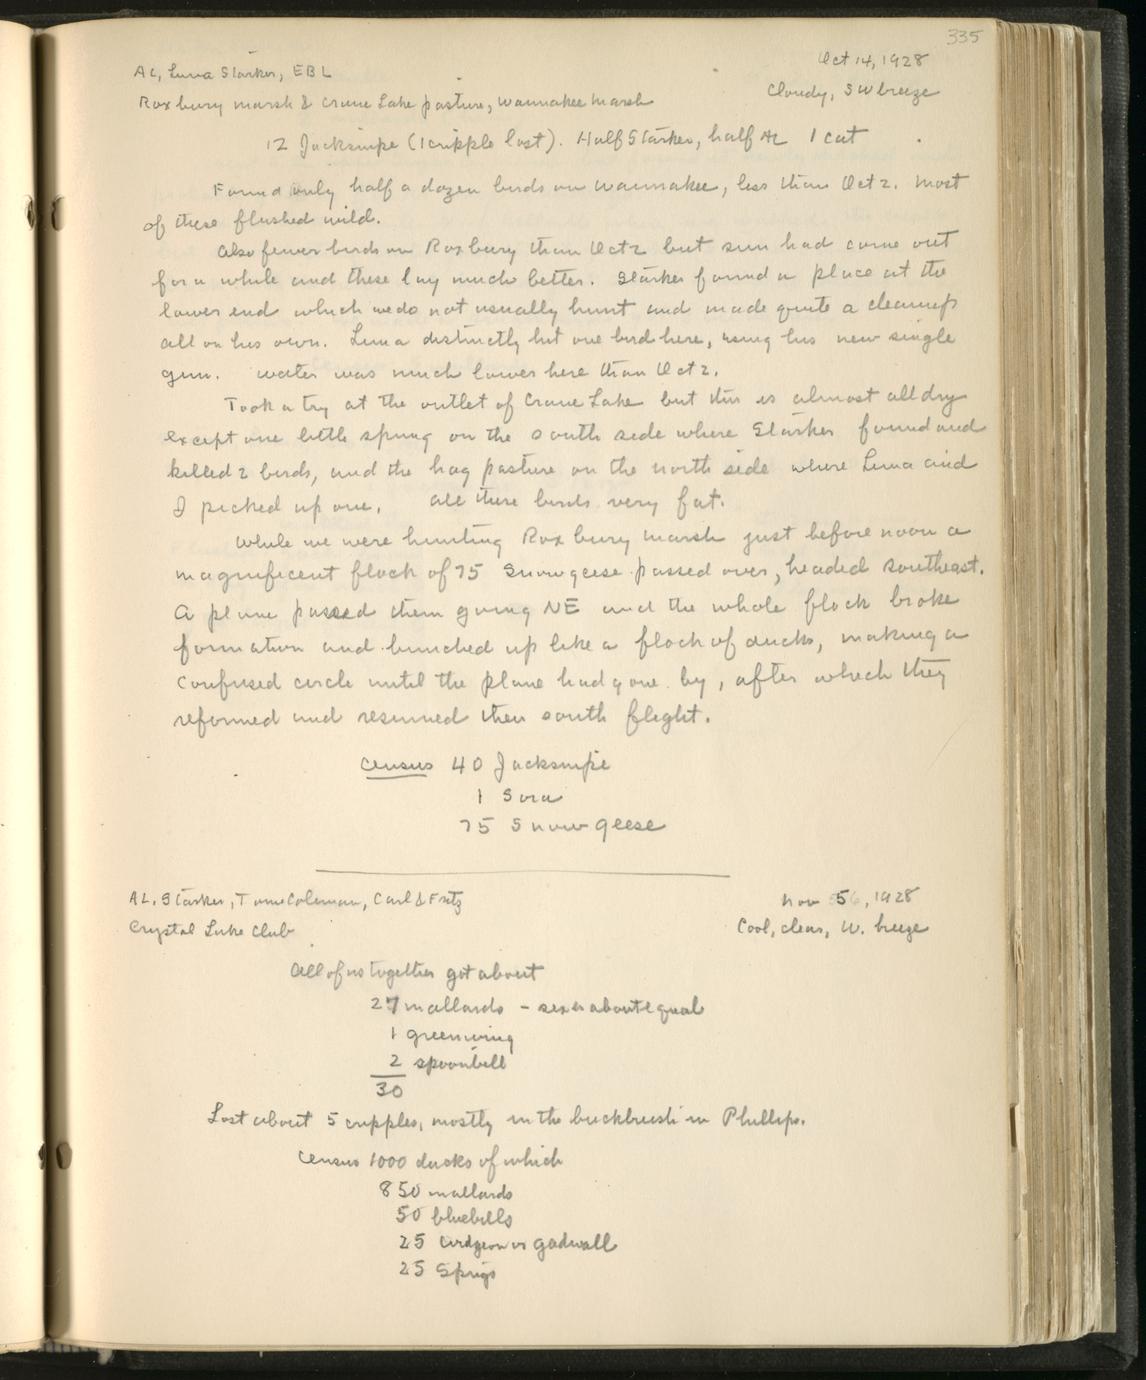 335
AL, Luna Starker, EBL
Oct 14, 1928
Roxbury marsh & Crane Lake pasture, Waunakee Marsh
Cloudy, SW breeze
12 Jacksnipe (1 cripple lost). Half Starker, half AL 1 cut
Found only half a dozen birds on Waunakee, less than Oct 2. Most
of these flushed wild.
Also fewer birds on Roxbury than Oct 2 but sun had come out
for a while and these lay much better. Starker found a place at the
lower end which we do not usually hunt and made quite a cleanup
all on his own. Luna distinctly hit one bird here, using his new single
gun. Water was much lower here than Oct 2.
Took a try at the outlet of Crane Lake but this is almost all dry
except one little spring on the south side where Starker found and
killed 2 birds, and the hog pasture on the north side where Luna and
I picked up one. All these birds very fat.
While we were hunting Roxbury marsh just before noon a
magnificent flock of 75 Snow geese passed over, headed southeast.
A plane passed them going NE and the whole flock broke
formation and bunched up like a flock of ducks, making a
confused circle until the plane had gone by, after which they
reformed and resumed their south flight.
Census 40 Jacksnipe
1 Sora
75 Snow geese
AL, Starker, Tom Coleman, Carl & Fritz
Nov 5 6, 1928
Crystal Lake Club
Cool, clear, W. breeze
All of us together got about
27 mallards - sexes about equal
1 greenwing
2 spoonbill
30
Lost about 5 cripples, mostly in the buckbrush in Phillips.
Census 1000 ducks of which
850 mallards
50 bluebills
25 widgeon or gadwall
25 Sprigs